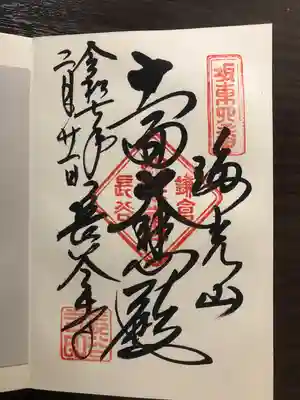 坂東四番
海光山
十一面大悲殿
鎌倉
長谷
令和七年
二月廿一日
長谷寺